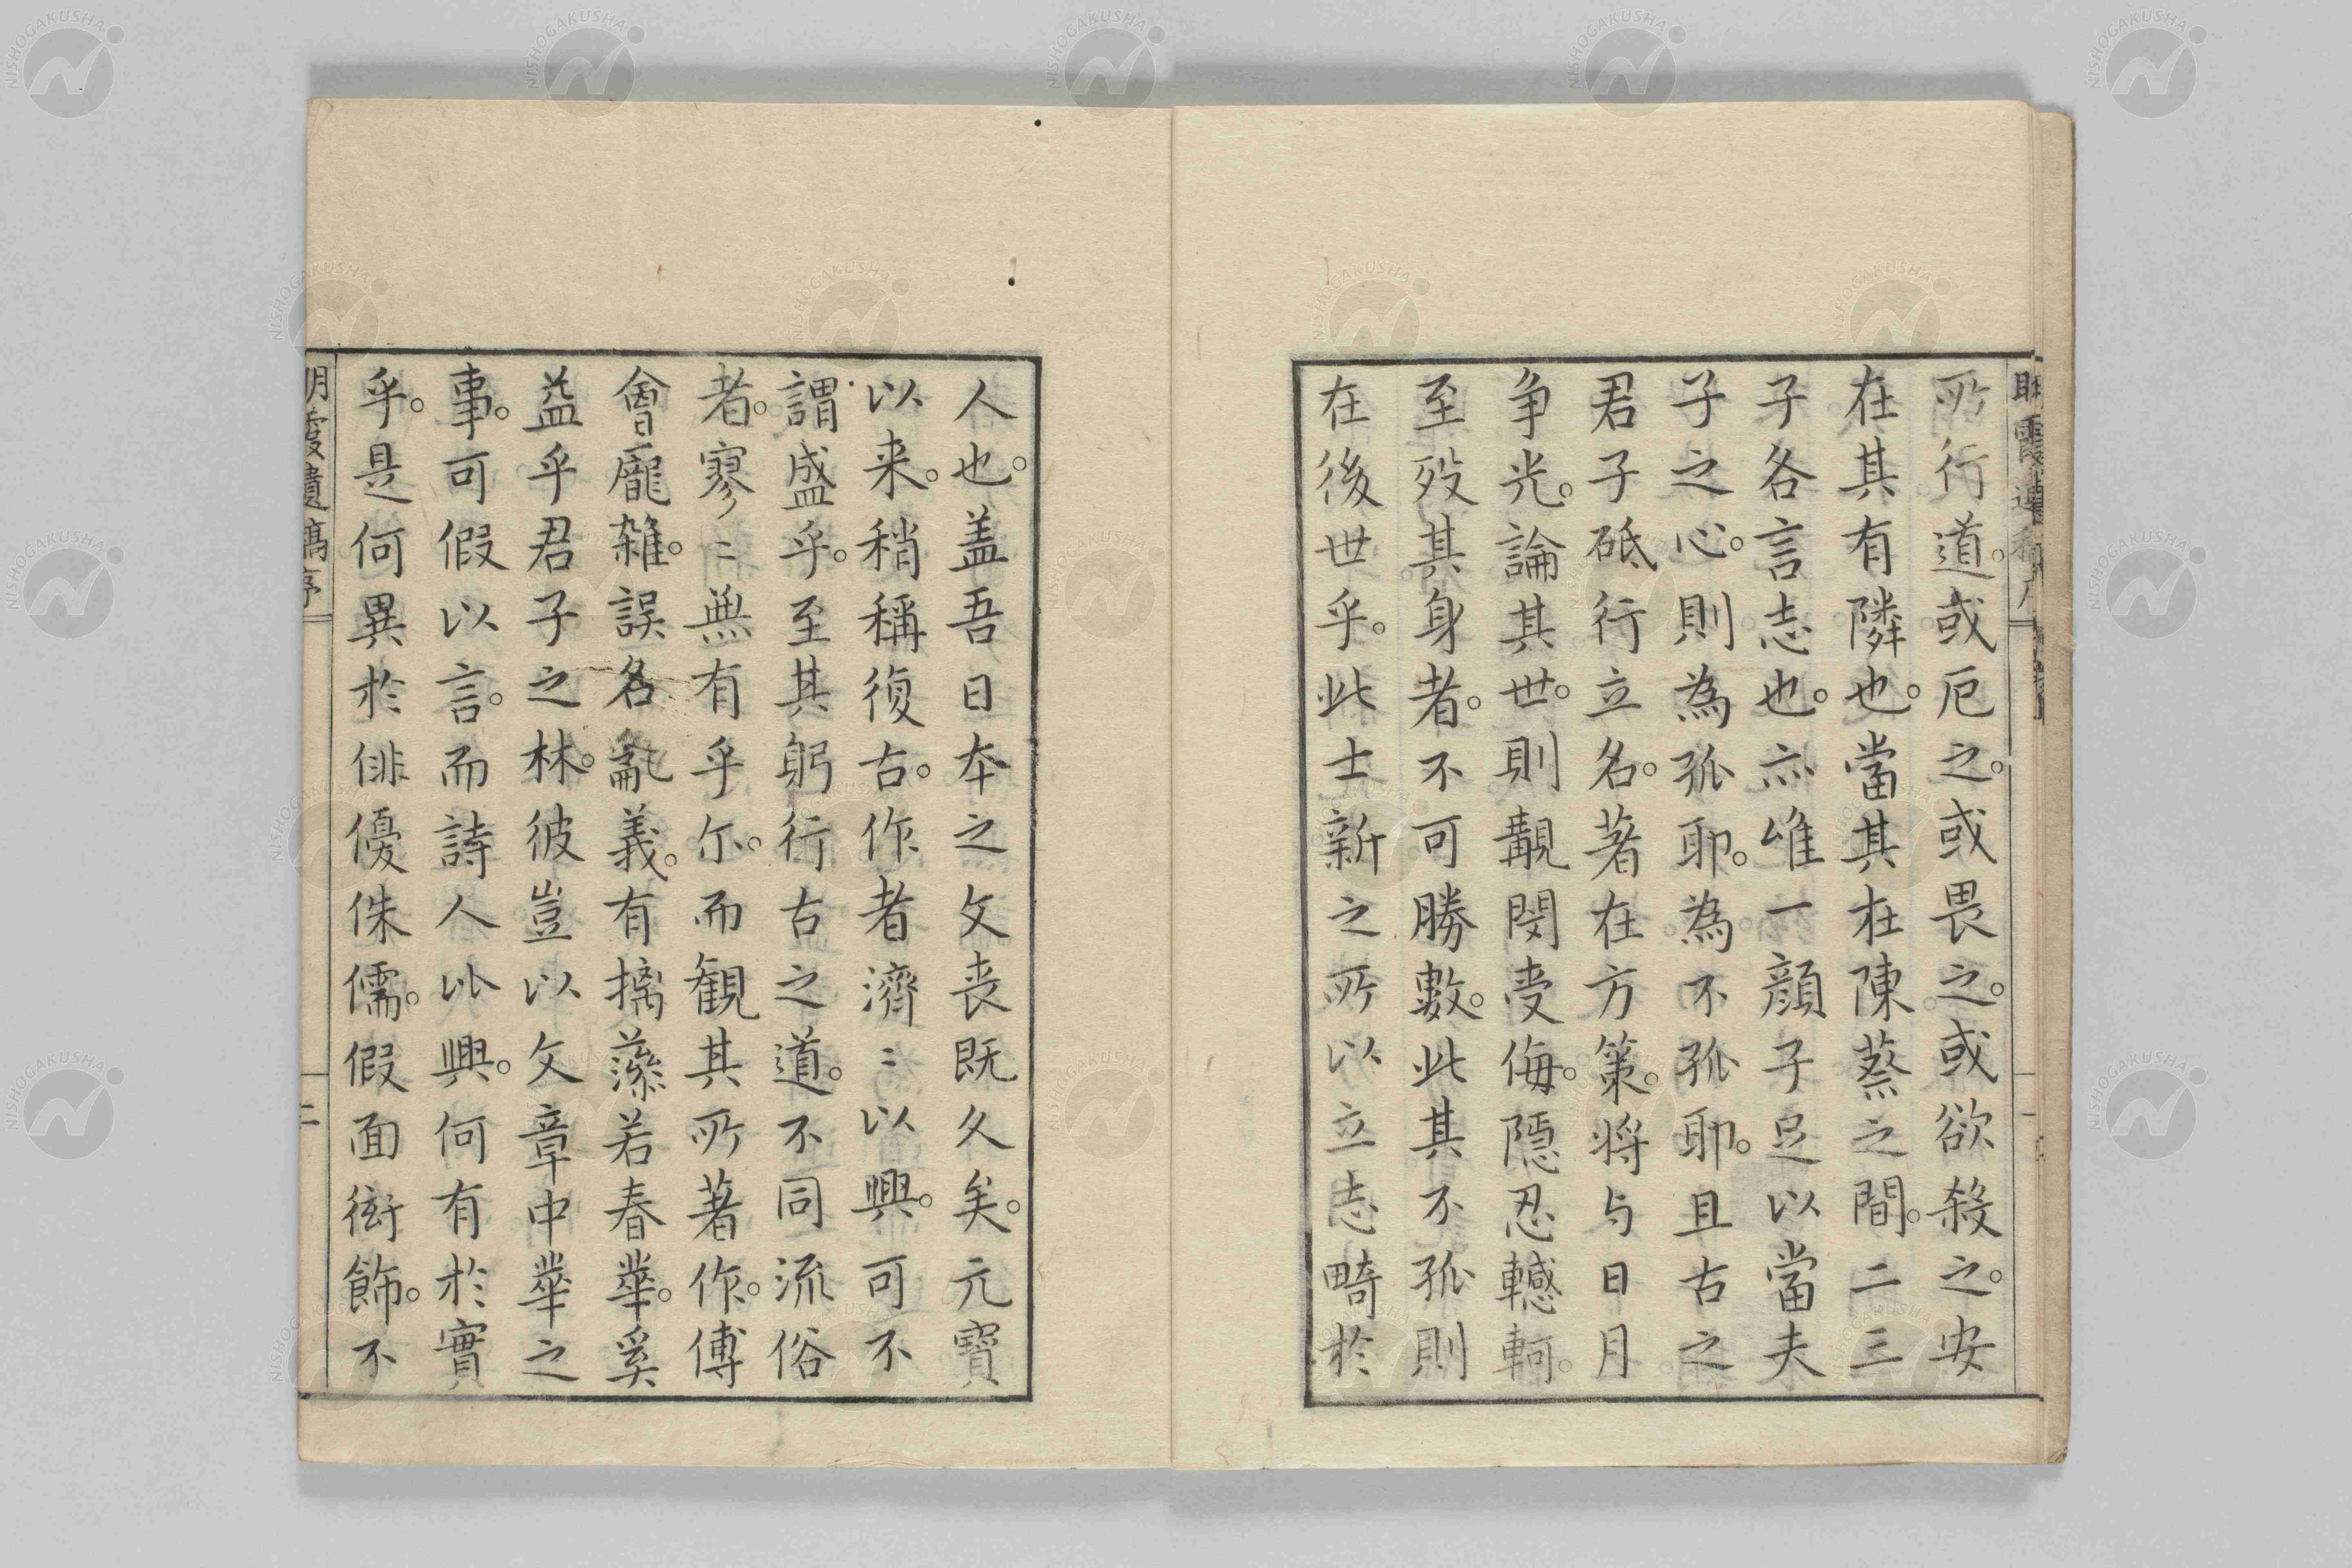 所行道。或厄之。或畏之。或欲殺之。安
在其有隣也。當其在陳蔡之間。二三
子各言志也。亦唯一顔子足以當夫
子之心。則為孤耶。為不孤耶。且古之
君子砥行立名。著在方策。将与日月
争光。論其世。則覯閔受侮。隱忍轗軻。
至歿其身者。不可勝數。此其不孤則
在後世乎。此士新之所以立志畸於
人也。盖吾日本之文丧既久矣。元寶
以来。稍稱復古。作者濟〻以興。可不
謂盛乎。至其躬行古之道。不同流俗
者。寥〻無有乎尓。而観其所著作。傅
會龐雑。誤名亂義。有摛藻若春華。奚
益乎君子之林。彼豈以文章中華之
事。可假以言。而詩人以興。何有於實
乎。是何異於俳優侏儒。假面衒飾。不
朙霞遺稿序
二
NISHOGAKUSHA